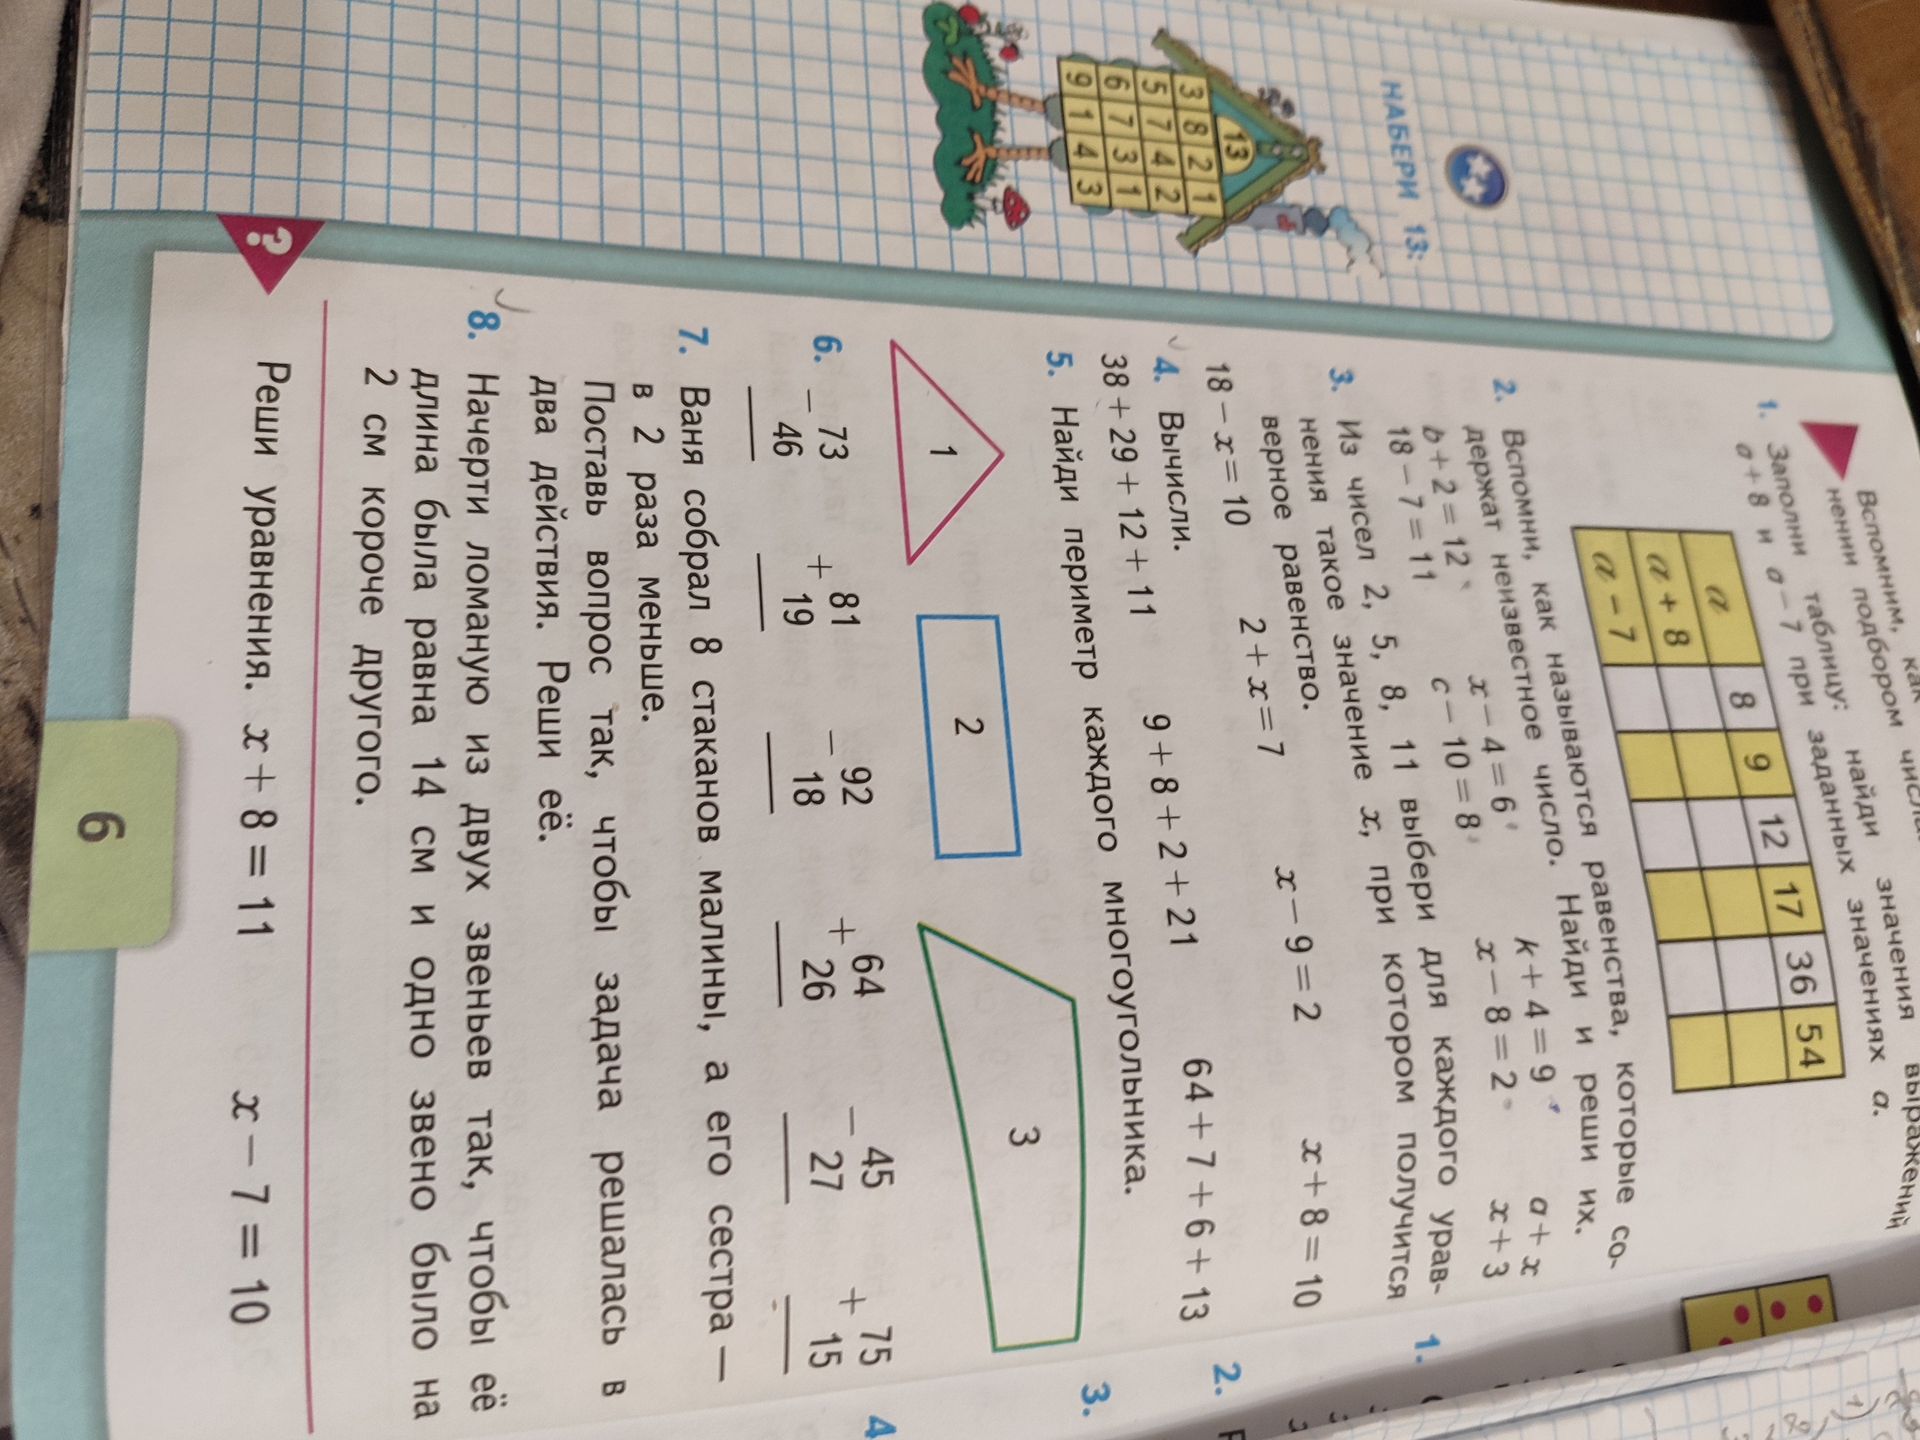 Вспомним, как
числа
значения выражений
нении подбором
1. Заполни таблицу: найди
a + 8 и a − 7 при заданных значениях a.
a 8 9 12 17 36 54
a + 8
a − 7
2. Вспомни, как называются равенства, которые со-
держат неизвестное число. Найди и реши их.
b + 2 = 12 x − 4 = 6 k + 4 = 9 a + x
18 − 7 = 11 c − 10 = 8 x − 8 = 2 x + 3
3. Из чисел 2, 5, 8, 11 выбери для каждого урав-
нения такое значение x, при котором получится
верное равенство.
18 − x = 10 2 + x = 7 x − 9 = 2 x + 8 = 10
4. Вычисли.
38 + 29 + 12 + 11 9 + 8 + 2 + 21 64 + 7 + 6 + 13
5. Найди периметр каждого многоугольника.
1 2 3
6. − 73 + 81 − 92 + 64 − 45 + 75
46 19 18 26 27 15
7. Ваня собрал 8 стаканов малины, а его сестра —
в 2 раза меньше.
Поставь вопрос так, чтобы задача решалась в
два действия. Реши её.
8. Начерти ломаную из двух звеньев так, чтобы её
длина была равна 14 см и одно звено было на
2 см короче другого.
? Реши уравнения. x + 8 = 11 x − 7 = 10
6
НАБЕРИ 13:
13
3 8 2 1
5 7 4 2
6 7 3 1
9 1 4 3
1.
2.
3.
4